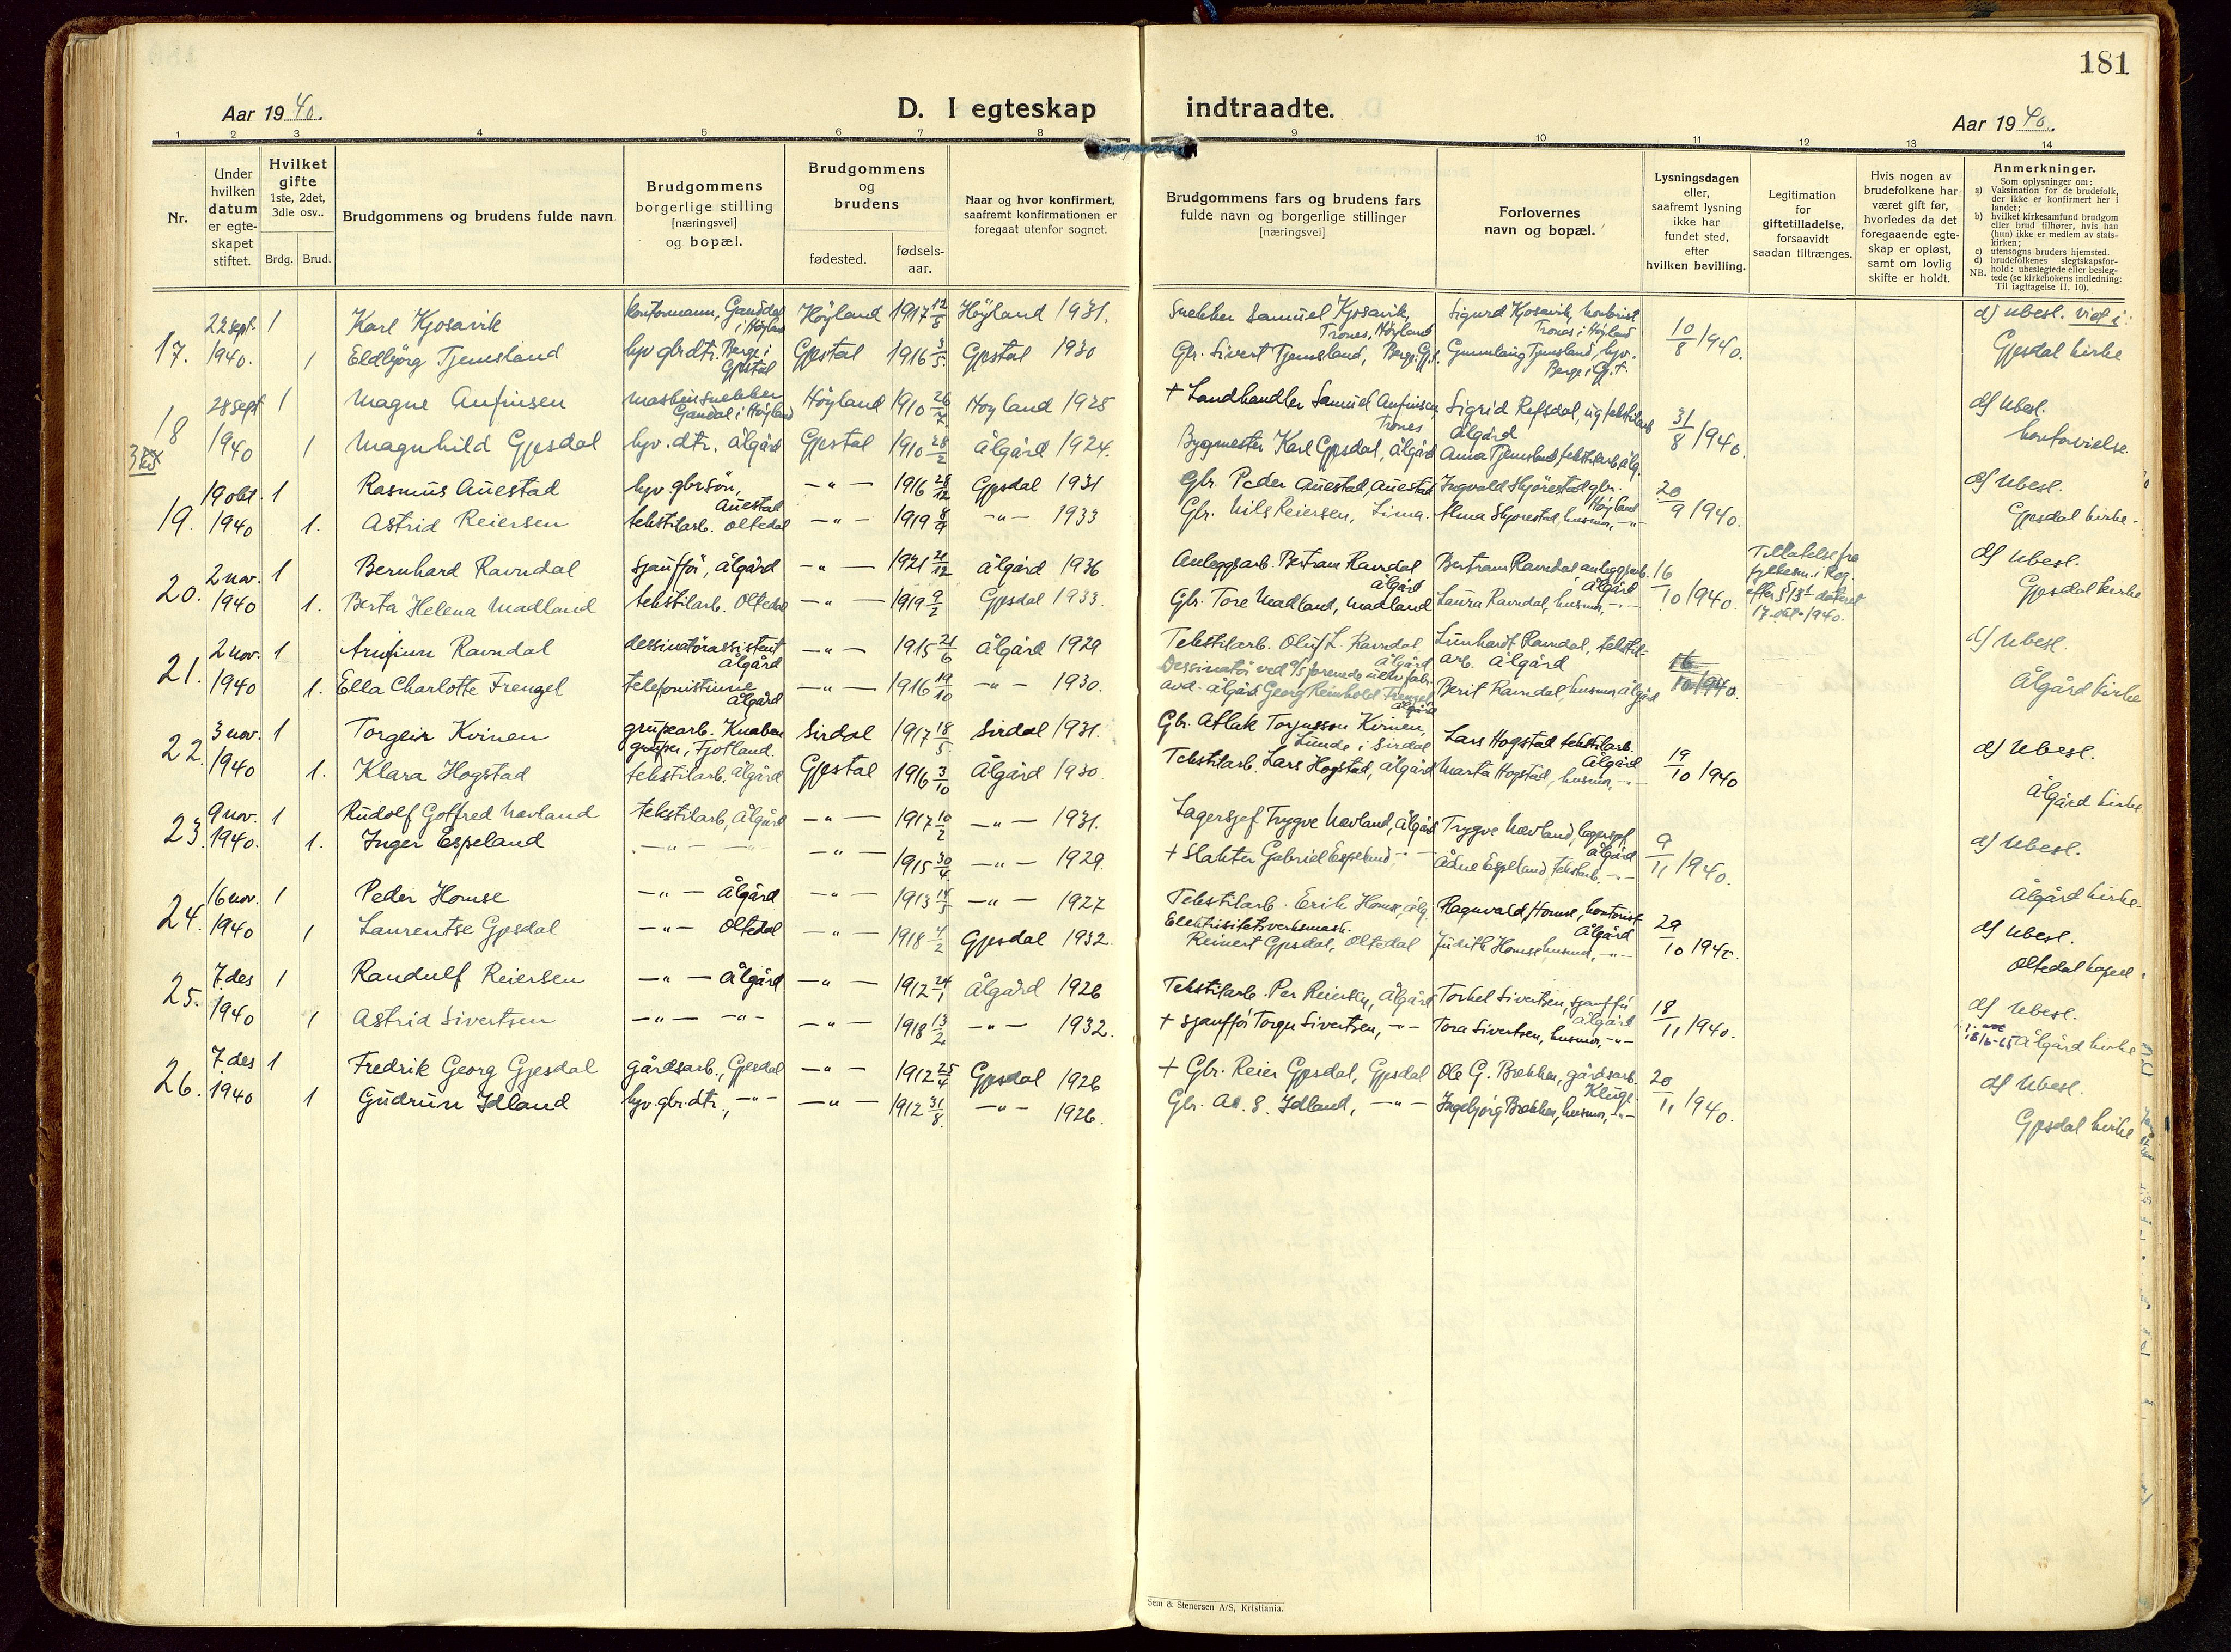 181
Aar 1940.
D. I egteskap indtraadte.
Aar 1940.
1 2 3 4 5 6 7 8 9 10 11 12 13 14
Nr.
Under hvilken datum er egteskapet stiftet.
Hvilket gifte 1ste, 2det, 3die osv..
Brdg. Brud.
Brudgommens og brudens fulde navn
Brudgommens borgerlige stilling [næringsvei] og bopæl.
Brudgommens og brudens
fødested.
fødselsaar.
Naar og hvor konfirmert, saafremt konfirmationen er foregaat utenfor sognet.
Brudgommens fars og brudens fars fulde navn og borgerlige stillinger [næringsvei]
Forlovernes navn og bopæl.
Lysningsdagen eller, saafremt lysning ikke har fundet sted, efter hvilken bevilling.
Legitimation for giftetilladelse, forsaavidt saadan tiltrænges.
Hvis nogen av brudefolkene har været gift før, hvorledes da det foregaaende egteskap er opløst, samt om lovlig skifte er holdt.
Anmerkninger.
Som oplysninger om:
a) Vaksination for de brudefolk, der ikke er konfirmert her i landet;
b) hvilket kirkesamfund brudgom eller brud tilhører, hvis han (hun) ikke er medlem av statskirken;
c) utensogns bruders hjemsted.
d) brudefolkenes slegtskapsforhold: ubeslegtede eller beslegtede (se kirkebokens indledning:
NB. Til iagttagelse II. 10).
17. 22 sept. 1940. 1 Karl Kjosavik kontormann, Ganddal i Høyland Høyland 1917 12/8 Høyland 1931. Snekker Samuel Kjosavik, Trones, Høyland Sigurd Kjosavik, kontorist Trones i Høyland 10/8 1940. d) ubesl. viet i
1 Eldbjørg Tjemsland hjv. gbr.dtr. Berge i Gjestal Gjestal 1916 3/5. Gjestal 1930 Gbr. Sivert Tjemsland, Berge, Gj. Gunnlaug Tjemsland, hjv. Berge i Gj.t. Gjesdal kirke
18 28 sept 1940 1 Magne Anfinsen maskinsnekker Gandal i Høyland Høyland 1910 26/7 Høyland 1925 + Landhandler Samuel Anfinsen Trones Sigrid Refsdal, ug. tekstilarb Ålgård 31/8 1940. d) ubesl.
1 Magnhild Gjesdal hjv. dtr. Ålgård Gjestal 1910 28/2 Ålgård 1924. Bygmester Karl Gjesdal, Ålgård Anna Tjemsland tekstilarb. Ålg. kontorvielse.
19. 19 okt. 1940 1 Rasmus Auestad hjv. gbr.søn, Auestad -"- 1916 28/12 Gjesdal 1931 Gbr. Peder Auestad, Auestad Ingvald Skjørestad gbr. Høyland 20/9 1940. d) ubesl.
1. Astrid Reiersen tekstilarb. Oltedal -"- 1919 8/9 -"- 1933 Gbr. Nils Reiersen, Lima. Alma Skjørestad, husmor, -"- Gjesdal kirke.
20. 2 nov. 1940 1 Bernhard Ravndal sjauffør, Ålgård -"- 1921 21/12 Ålgård 1936 Anleggsarb. Bertram Ravndal Ålgård Bertram Ravndal anleggsarb. Ålgård 16/10 1940. Tillatelse fra fylkesm. i Rog. efter § 13 datert 17. okt. 1940. d) ubesl.
1. Berta Helena Madland tekstilarb. Oltedal -"- 1919 9/2 Gjesdal 1933. Gbr. Tore Madland, Madland Laura Ravndal, husmor, -"- Gjesdal kirke
21. 2 nov. 1940 1 Arnfinn Ravndal dessinatørassistent Ålgård -"- 1915 21/6 Ålgård 1929 Tekstilarb. Oluf L. Ravndal, Ålgård Lunhardt Ravndal, tekstilarb. Ålgård 16/10 1940. d) ubesl.
1. Ella Charlotte Frenzel telefonistinne Ålgård -"- 1916 19/10 -"- 1930. Dessinatør ved A/S forenede uldv.fabr. avd. Ålgård Georg Reinhold Frenzel Ålgård Berit Ravndal, husmor, Ålgård Ålgård kirke
22. 3 nov. 1940 1 Torgeir Kvinen grupearb. Knaben gruper, Fjotland. Sirdal 1917 18/5 Sirdal 1931. Gbr. Aslak Torjusson Kvinen, Lunde i Sirdal Lars Hogstad tekstilarb. Ålgård 19/10 1940 d) ubesl.
1. Klara Hogstad tekstilarb. Ålgård Gjestal 1916 3/10 Ålgård 1930. Tekstilarb. Lars Hogstad, Ålgård Marta Hogstad, husmor, -"- Ålgård kirke
23. 9 nov. 1940. 1 Rudolf Gotfred Nevland tekstilarb, Ålgård -"- 1917 10/2 -"- 1931. Lagersjef Trygve Nevland, Ålgård Trygve Nevland, lagersjef, Ålgård 9/11 1940. d) ubesl.
1. Inger Espeland -"- -"- -"- 1915 30/4 -"- 1929. + Slakter Gabriel Espeland -"- Ådne Espeland tekstarb. -"- Ålgård kirke.
24. 16 nov. 1940 1 Peder Homse -"- Ålgård -"- 1913 14/5 -"- 1927 Tekstilarb. Erik Homse, Ålg. Ragnvald Homse, kontorist Ålgård 29/10 1940. d) ubesl.
1 Laurentse Gjesdal -"- Oltedal -"- 1918 4/2 Gjesdal 1932. Elektrisitetsverksmask. Reinert Gjesdal, Oltedal Judith Homse husmor, -"- Oltedal kapell.
25. 7. des 1940 1 Randulf Reiersen -"- Ålgård -"- 1912 24/1 Ålgård 1926 Tekstilarb. Per Reiersen, Ålgård Torkel Sivertsen, sjauffør Ålgård 18/11 1940. d) ubesl.
1 Astrid Sivertsen -"- -"- -"- 1918 13/2 -"- 1932. + sjauffør Torger Sivertsen, -"- Tora Sivertsen, husmor, -"- Ålgård kirke
26. 7. des 1940 1 Fredrik Georg Gjesdal gårdsarb., Gjesdal -"- 1912 25/4 Gjesdal 1926 + Gbr. Reier Gjesdal, Gjesdal Ole G. Brekken, gårdsarb. Kluge 20/11 1940. d) ubesl.
1 Gudrun Idland hjv. gbr.dtr., -"- -"- 1912 31/8. -"- 1926. Gbr. A. S. Idland, -"- Ingebjørg Brekken, husmor, -"- Gjesdal kirke
Sem & Stenersen A/S, Kristiania.